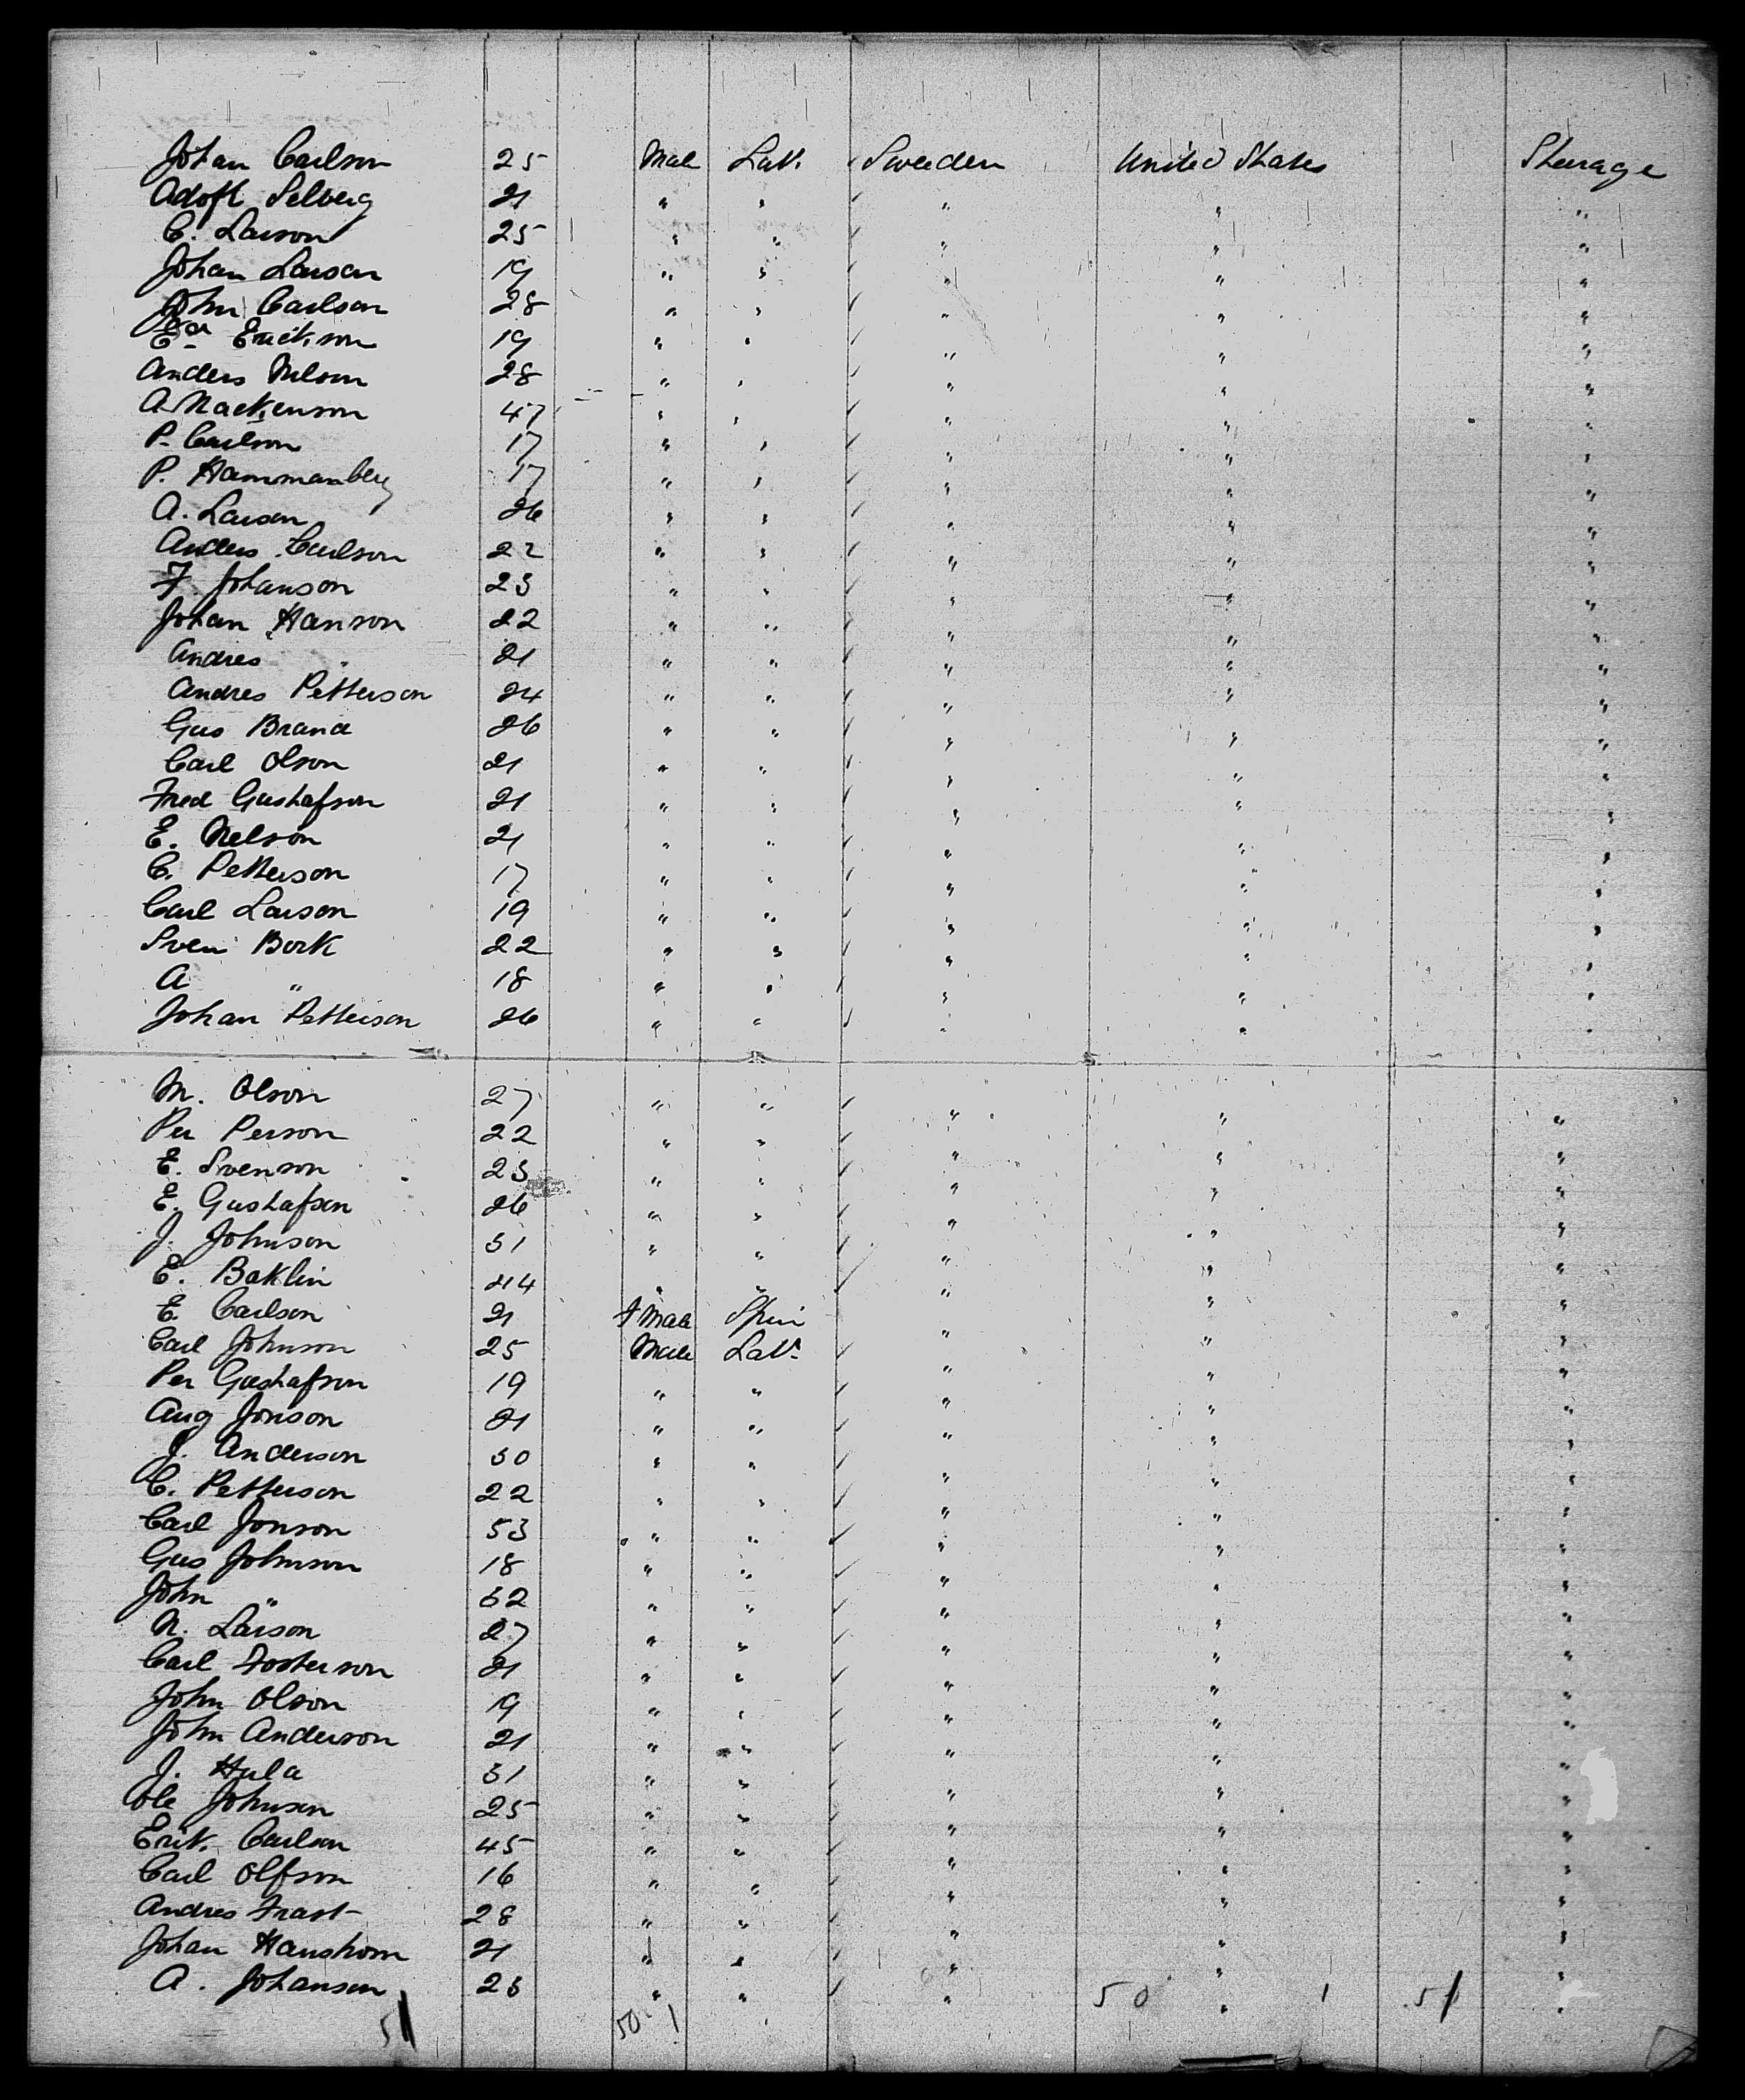 Johan Carlson 25 Male Lab. Sweeden United States Steerage
Adoft Selberg 21 " " " " "
C. Larson 25 " " " " "
Johan Larson 19 " " " " "
John Carlson 28 " " " " "
Erickson 19 " " " " "
Anders Nelson 28 " " " " "
A. Mackenson 47 " " " " "
P. Carlson 17 " " " " "
P. Hammanberg 17 " " " " "
A. Larson 26 " " " " "
Anders Carlson 22 " " " " "
F. Johanson 23 " " " " "
Johan Hanson 22 " " " " "
Andres " 21 " " " " "
Andres Petterson 24 " " " " "
Gus Brand 26 " " " " "
Carl Olson 21 " " " " "
Fred Gustafson 21 " " " " "
E. Nelson 21 " " " " "
C. Petterson 17 " " " " "
Carl Larson 19 " " " " "
Sven Bork 22 " " " " "
A " 18 " " " " "
Johan Petterson 26 " " " " "
M. Olson 27 " " " " "
Per Person 22 " " " " "
E. Svenson 23 " " " " "
E. Gustafson 26 " " " " "
J. Johnson 31 " " " " "
E. Baklin 44 " " " " "
E. Carlson 21 F Male Spin " " "
Carl Johnson 25 Male Lab. " " "
Per Gustafson 19 " " " " "
Aug Jonson 21 " " " " "
J. Anderson 30 " " " " "
C. Petterson 22 " " " " "
Carl Jonson 53 " " " " "
Gus Johnson 18 " " " " "
John " 32 " " " " "
N. Larson 27 " " " " "
Carl Fosterson 21 " " " " "
John Olson 19 " " " " "
John Anderson 21 " " " " "
J. Hula 31 " " " " "
Ole Johnson 25 " " " " "
Erik Carlson 45 " " " " "
Carl Olfson 16 " " " " "
Andres Frast 28 " " " " "
Johan Hanshom 21 " " " " "
A. Johanson 23 " " " 50 " 1 51 "
51 50 1